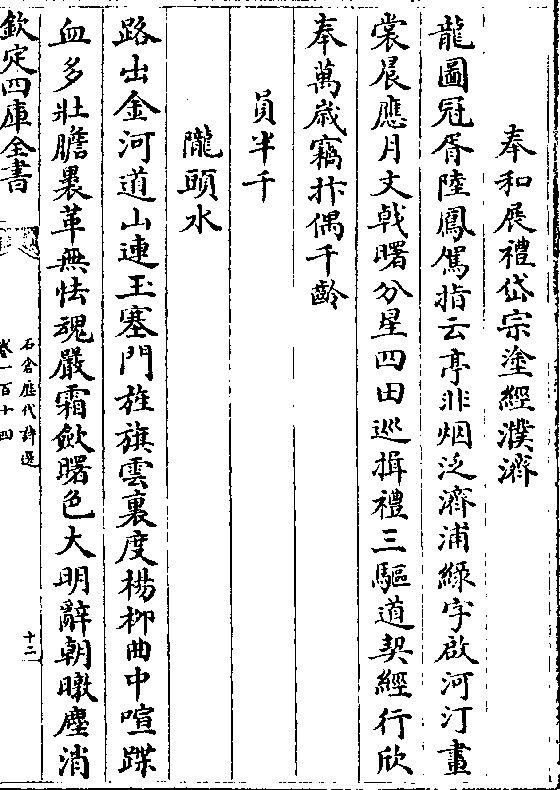 奉和展禮岱宗塗經濮濟
龍圖冠胥陸鳳駕指云亭非烟泛濟浦綠字啟河汀畫
裳晨應月文戟曙分星四田巡揖禮三驅道契經行欣
奉萬歳竊抃偶千齡
員半千
隴頭水
路出金河道山連玉塞門旌旗雲裏度楊柳曲中喧蹀
血多壯膽褁革無怯魂嚴霜歛曙色大明辭朝暾塵消
欽定四庫全書
石倉歴代詩選
卷一百十四
十二